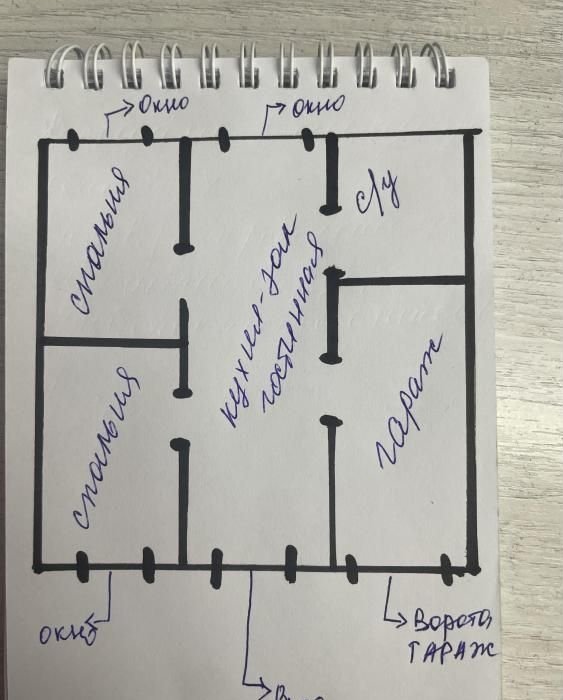 Окно
Окно
спальня
с/у
кухня-зал
гостинная
спальня
гараж
окно
Ворота
ГАРАЖ